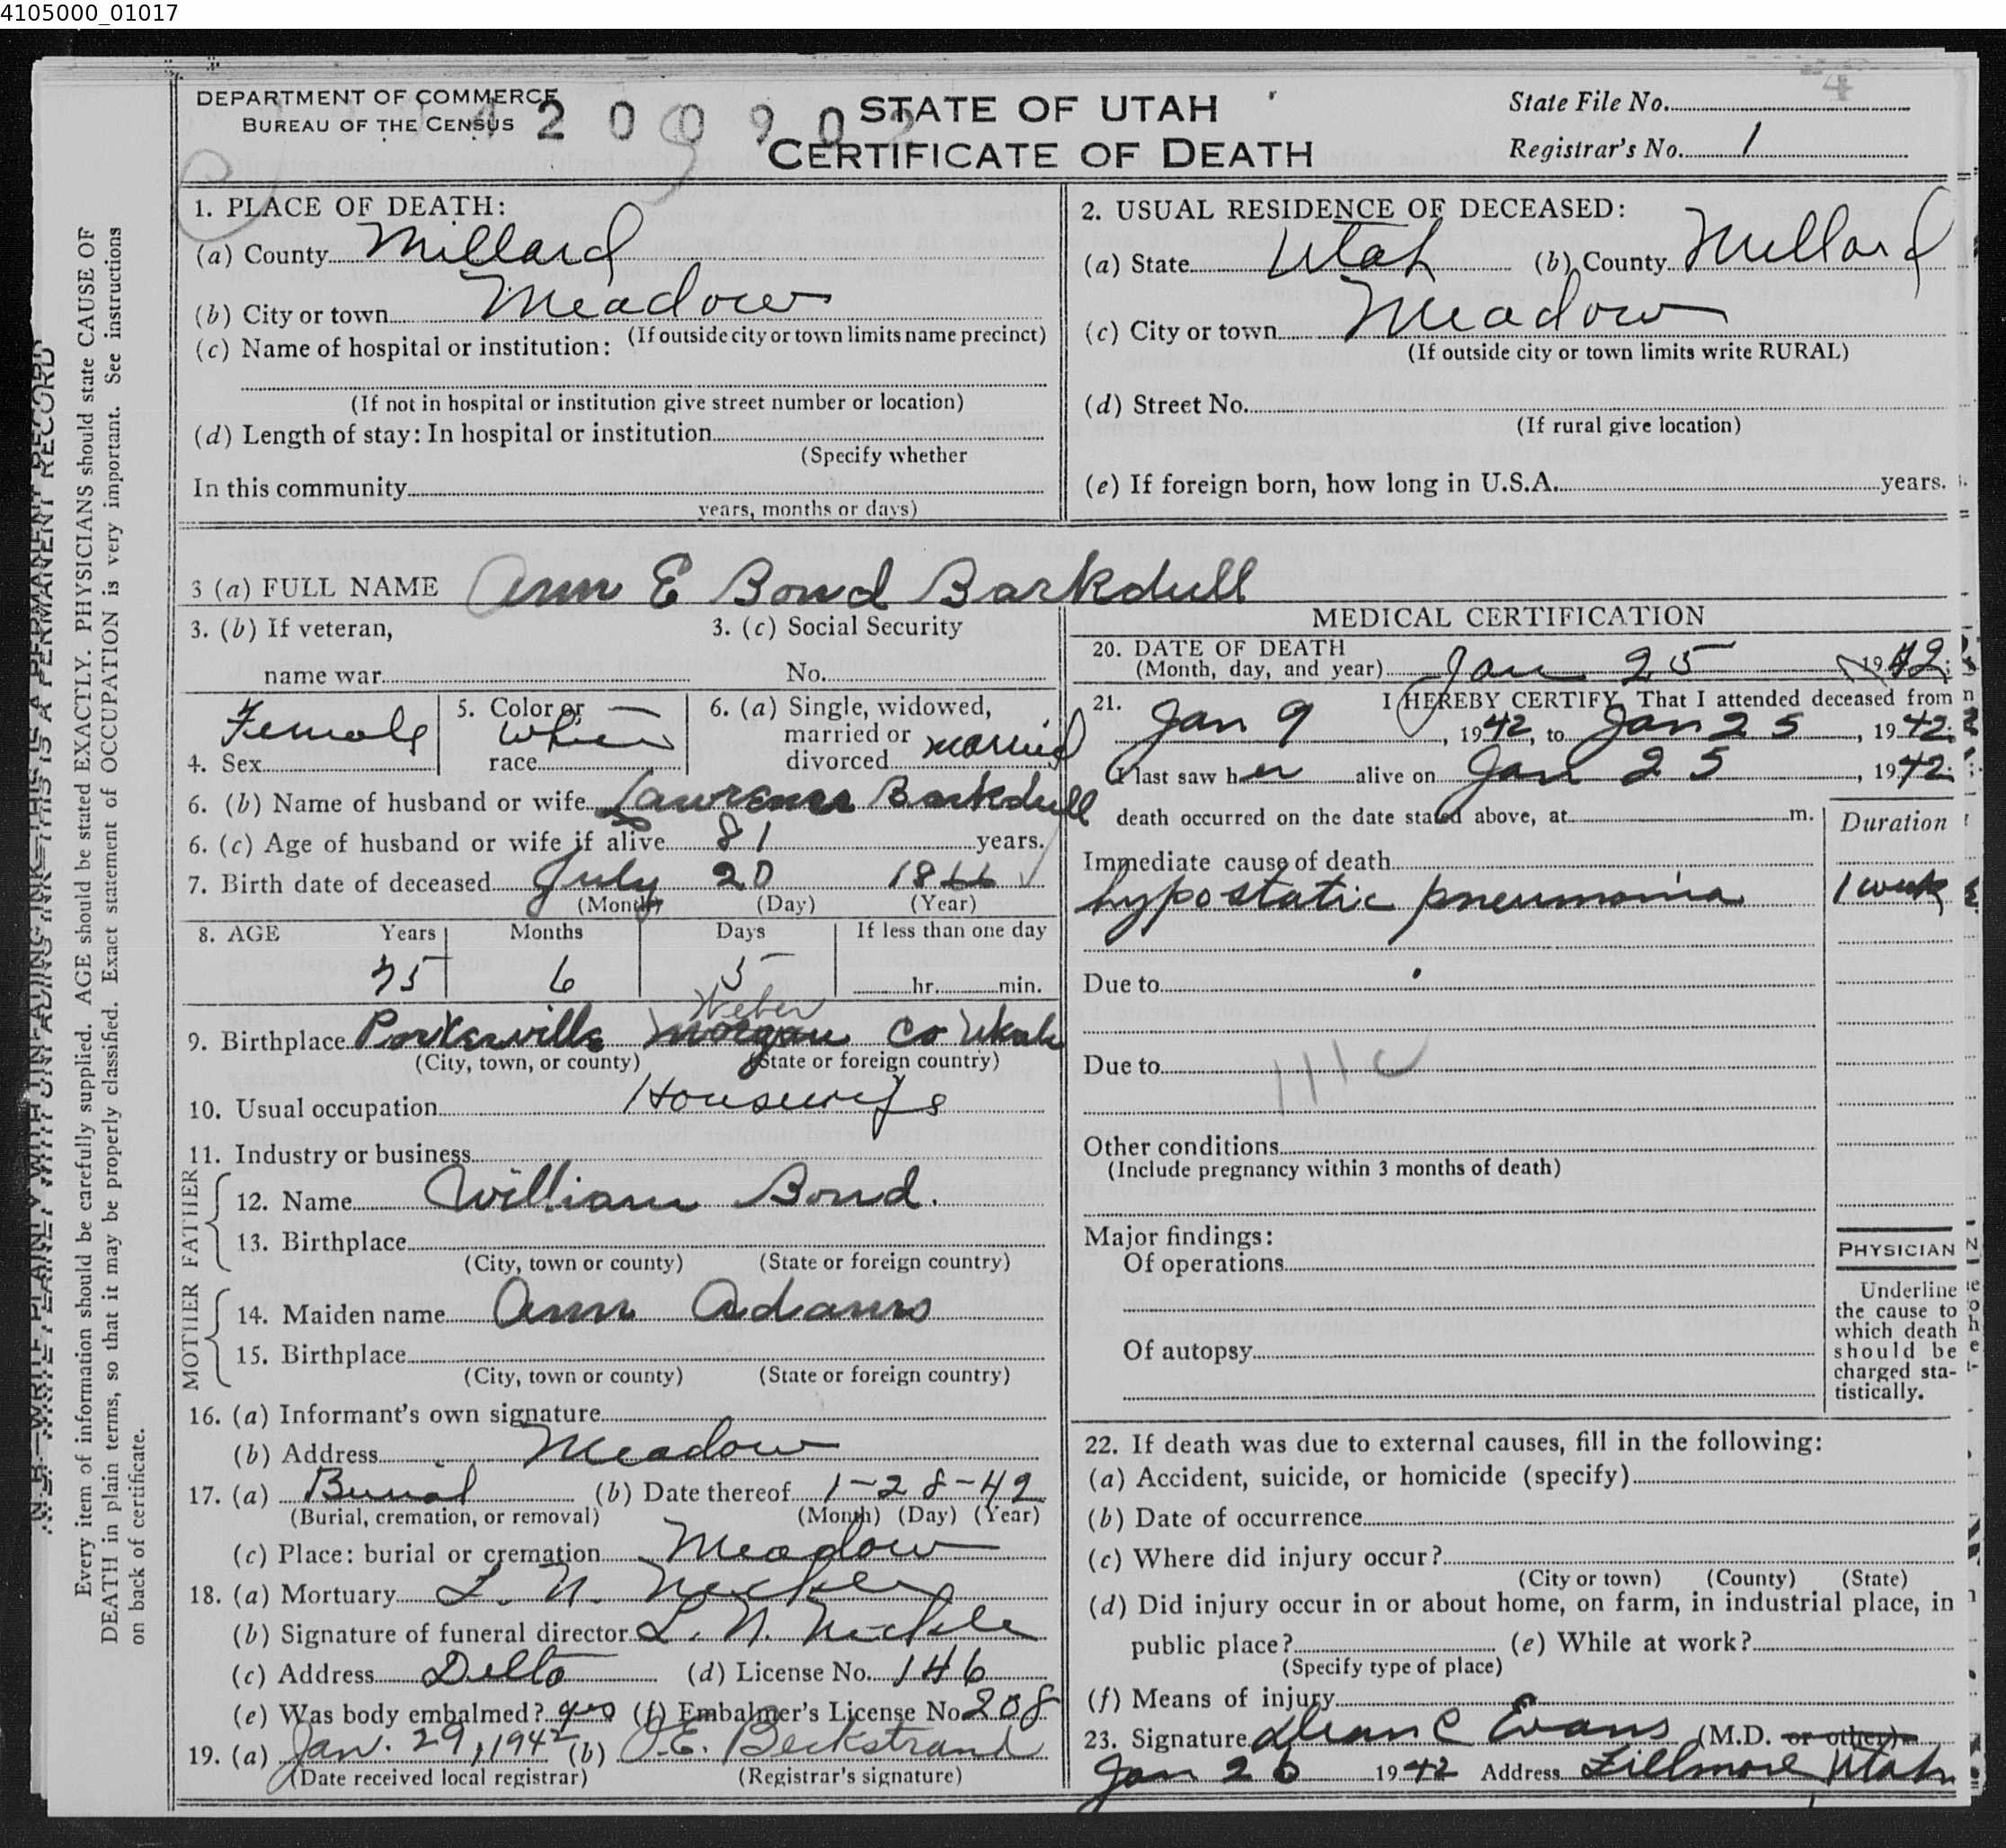 4105000_01017
DEPARTMENT OF COMMERCE
BUREAU OF THE CENSUS
4 2 0 0 9 0 2
STATE OF UTAH
CERTIFICATE OF DEATH
State File No. 4
Registrar's No. 1
N.B.—WRITE PLAINLY WITH UNFADING INK—THIS IS A PERMANENT RECORD
Every item of information should be carefully supplied. AGE should be stated EXACTLY. PHYSICIANS should state CAUSE OF
DEATH in plain terms, so that it may be properly classified. Exact statement of OCCUPATION is very important. See instructions
on back of certificate.
1. PLACE OF DEATH:
(a) County Millard
(b) City or town Meadow
(If outside city or town limits name precinct)
(c) Name of hospital or institution:
(If not in hospital or institution give street number or location)
(d) Length of stay: In hospital or institution
(Specify whether
In this community
years, months or days)
2. USUAL RESIDENCE OF DECEASED:
(a) State Utah (b) County Millard
(c) City or town Meadow
(If outside city or town limits write RURAL)
(d) Street No.
(If rural give location)
(e) If foreign born, how long in U.S.A. years.
3 (a) FULL NAME Ann E Bond Barkdull
3. (b) If veteran,
name war
3. (c) Social Security
No.
4. Sex Female
5. Color or
race White
6. (a) Single, widowed,
married or
divorced married
6. (b) Name of husband or wife Lawrence Barkdull
6. (c) Age of husband or wife if alive 81 years.
7. Birth date of deceased July 20 1866
(Month) (Day) (Year)
8. AGE Years Months Days If less than one day
75 6 5 hr. min.
Weber
9. Birthplace Porterville Morgan Co Utah
(City, town, or county) (State or foreign country)
10. Usual occupation Housewife
11. Industry or business
FATHER
12. Name William Bond.
13. Birthplace
(City, town or county) (State or foreign country)
MOTHER
14. Maiden name Ann Adams
15. Birthplace
(City, town or county) (State or foreign country)
16. (a) Informant's own signature
(b) Address Meadow
17. (a) Burial (b) Date thereof 1-28-42
(Burial, cremation, or removal) (Month) (Day) (Year)
(c) Place: burial or cremation Meadow
18. (a) Mortuary L. N. Nickle
(b) Signature of funeral director L. N. Nickle
(c) Address Delta (d) License No. 146
(e) Was body embalmed? yes (f) Embalmer's License No 208
19. (a) Jan. 29, 1942 (b) O.E. Beckstrand
(Date received local registrar) (Registrar's signature)
MEDICAL CERTIFICATION
20. DATE OF DEATH
(Month, day, and year) Jan 25 1942
21. I HEREBY CERTIFY, That I attended deceased from
Jan 9, 1942, to Jan 25, 1942
I last saw her alive on Jan 25, 1942
death occurred on the date stated above, at m.
Duration
Immediate cause of death
hypostatic pneumonia 1 week
Due to
Due to
111c
Other conditions
(Include pregnancy within 3 months of death)
Major findings:
Of operations
Of autopsy
PHYSICIAN
Underline
the cause to
which death
should be
charged sta-
tistically.
22. If death was due to external causes, fill in the following:
(a) Accident, suicide, or homicide (specify)
(b) Date of occurrence
(c) Where did injury occur?
(City or town) (County) (State)
(d) Did injury occur in or about home, on farm, in industrial place, in
public place? (e) While at work?
(Specify type of place)
(f) Means of injury
23. Signature Dean C Evans (M.D. or other)
Jan 26 1942 Address Fillmore Utah